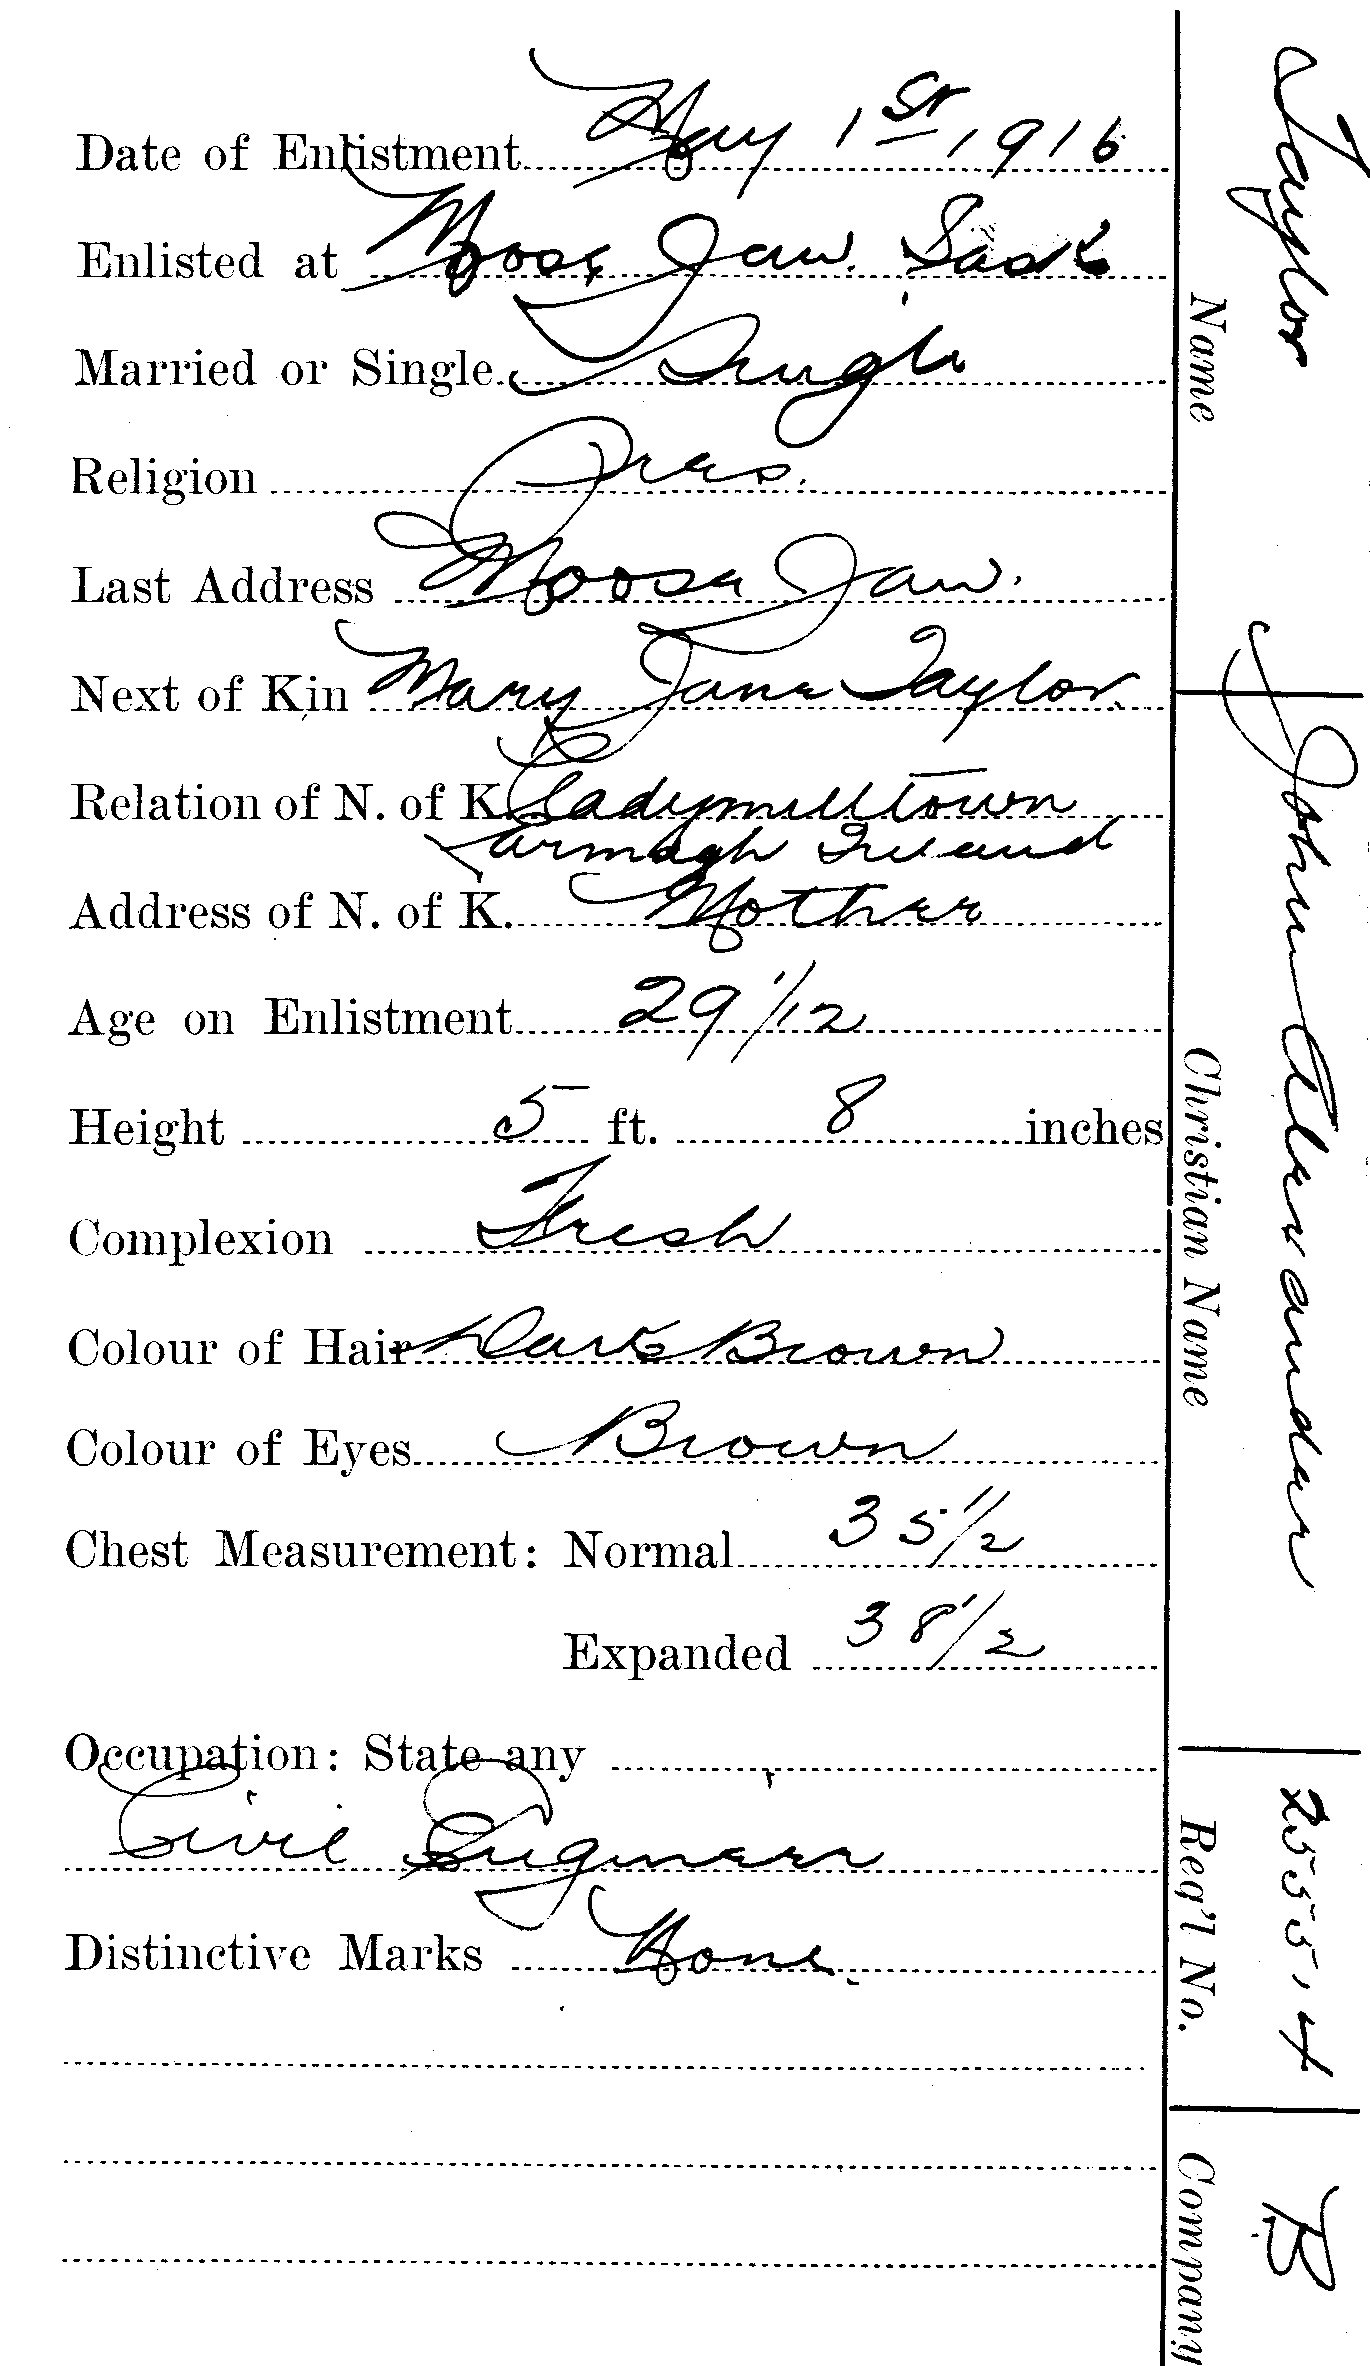 Date of Enlistment May 1st, 1916
Enlisted at Moose Jaw. Sask
Married or Single Single
Religion Pres.
Last Address Moose Jaw.
Next of Kin Mary Jane Taylor.
Relation of N. of K. Cladymilltown
Armagh Ireland
Address of N. of K. Mother
Age on Enlistment 29 1/12
Height 5 ft. 8 inches
Complexion Fresh
Colour of Hair Dark Brown
Colour of Eyes Brown
Chest Measurement: Normal 35 1/2
Expanded 38 1/2
Occupation: State any
Civil Engineer
Distinctive Marks None.
Taylor John Alexander 2555,4 B
Name Christian Name Reg'l No. Company